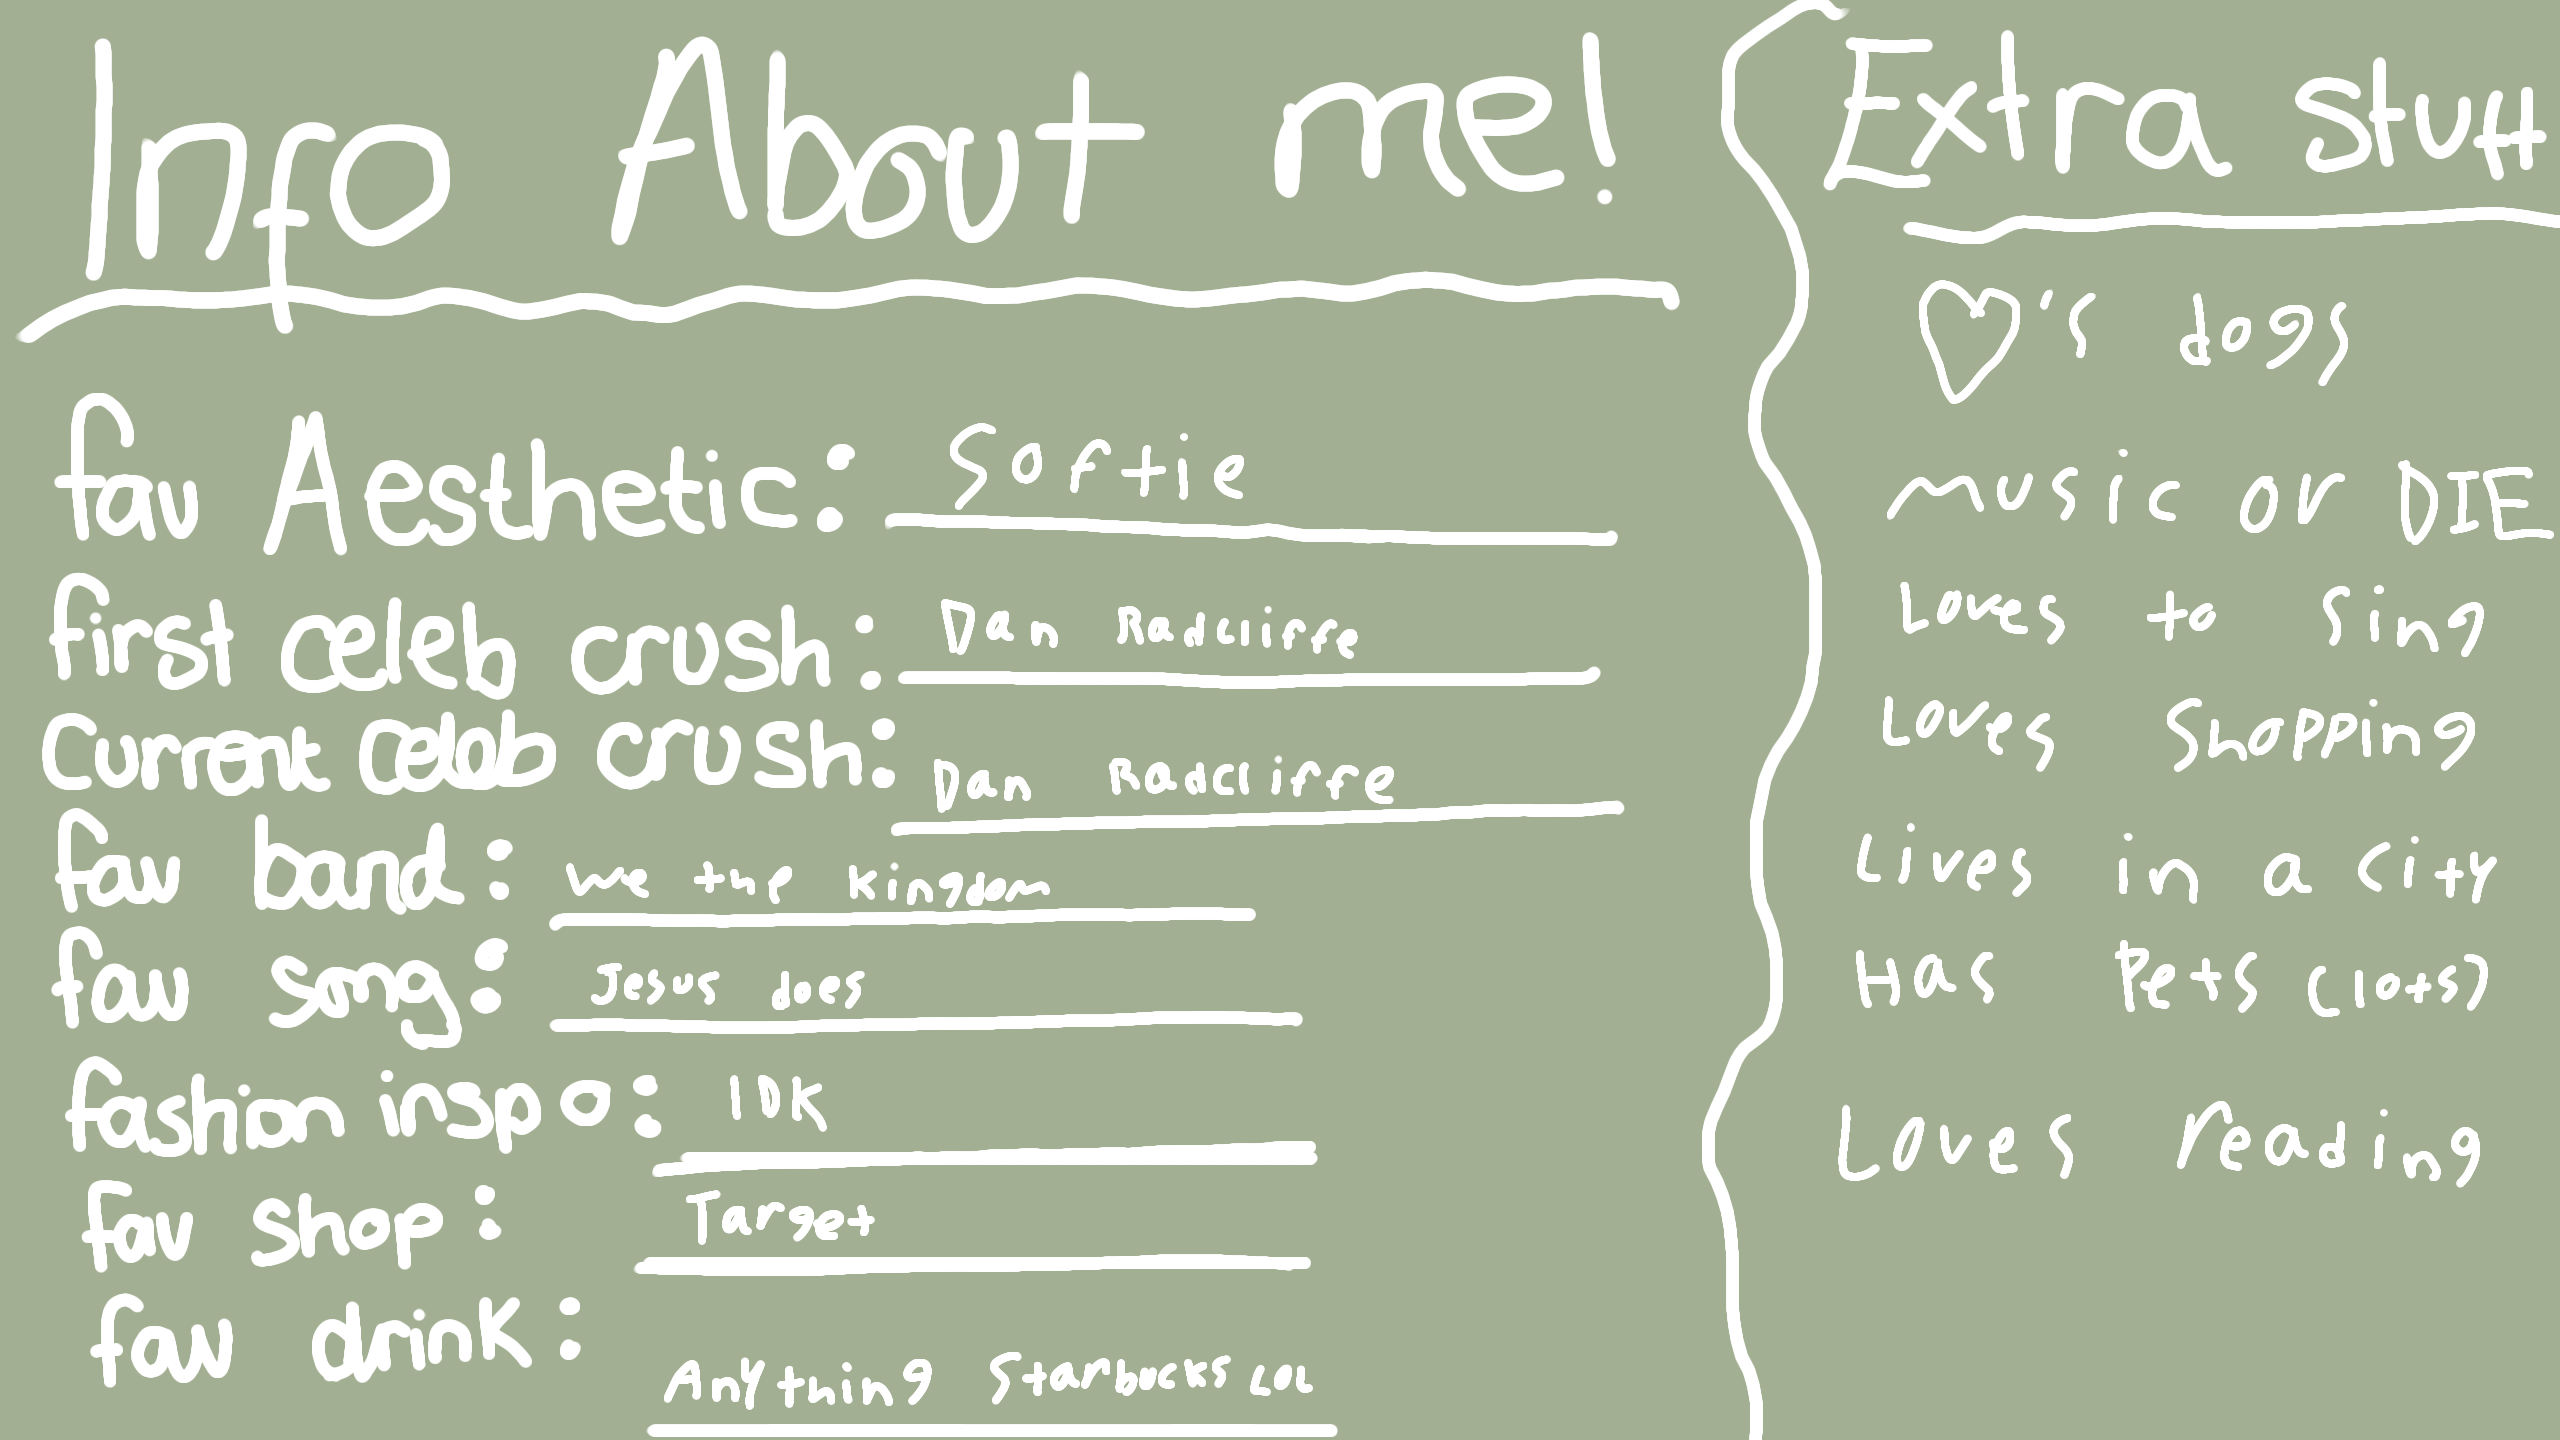 Info About me!
fav Aesthetic: Softie
first celeb crush: Dan Radcliffe
Current celeb crush: Dan Radcliffe
fav band: we the kingdom
fav song: Jesus does
fashion inspo: IDK
fav shop: Target
fav drink: Anything Starbucks LOL
Extra stuff
♡'s dogs
music or DIE
Loves to Sing
Loves Shopping
Lives in a City
Has Pets (lots)
Loves reading